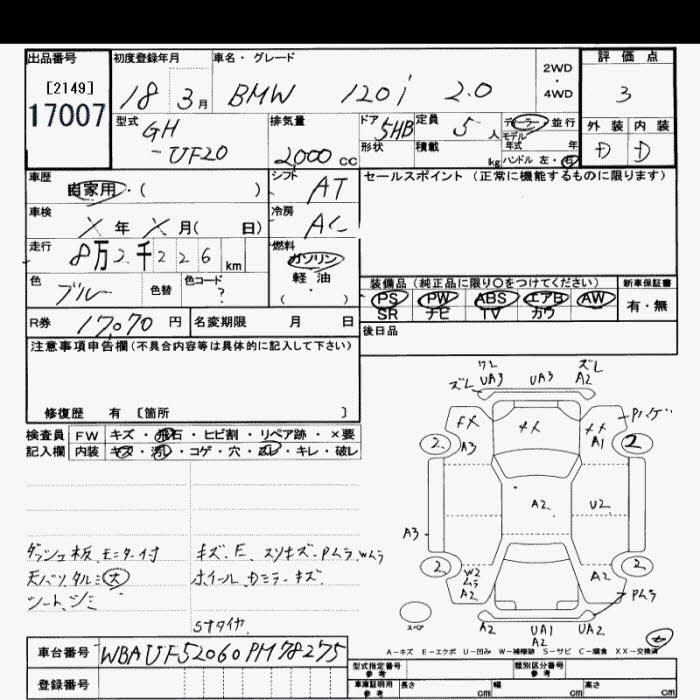 出品番号 初度登録年月 車名・グレード 2WD ・ 4WD 評価点
[2149]
17007
18 3月 BMW 120i 2.0 3
型式 GH-UF20 排気量 2,000 cc ドア 5HB 形状 定員 5人 積載 kg ディーラー 並行 モデル年式 年 ハンドル 左・右 外装 内装
D D
車歴 自家用・( ) シフト AT セールスポイント (正常に機能するものに限ります)
車検 X年X月( 日) 冷房 AC
走行 8万2千226km 燃料 ガソリン 軽油 ( ・ )
色 ブルー 色替 色コード ?
装備品 (純正品に限り○をつけてください) 新車保証書
PS PW ABS エアB AW 有・無
SR ナビ TV カワ
R券 17,070円 名変期限 月 日 後日品
注意事項申告欄 (不具合内容等は具体的に記入して下さい)
修復歴 有 [箇所 ]
検査員 FW キズ・飛石・ヒビ割・リペア跡・×要
記入欄 内装 キズ・汚れ・コゲ・穴・ズレ・キレ・破レ
ズレ ワレ UA3 UA3 ズレ A2
メメ A3 メメ メメ A1
2. 2
A3 A2 U2
2. 2.
W2 ムラ A2 A2 Pムラ
スペア A2 UA1 A2 UA2
ダッシュ板、モニター付
天バリタルミ大
シート、シミ
キズ、E、スリキズ-Pムラ、Wムラ
ホイール、Dミラーキズ
Sタイヤ
A-キズ E-エクボ U-凹み W-補修跡 S-サビ C-腐食 XX-交換済
車台番号 WBAUF52060PM78275
登録番号
型式指定番号 参考 類別区分番号 参考
車庫証明用 参考 長さ cm 幅 cm 高さ cm